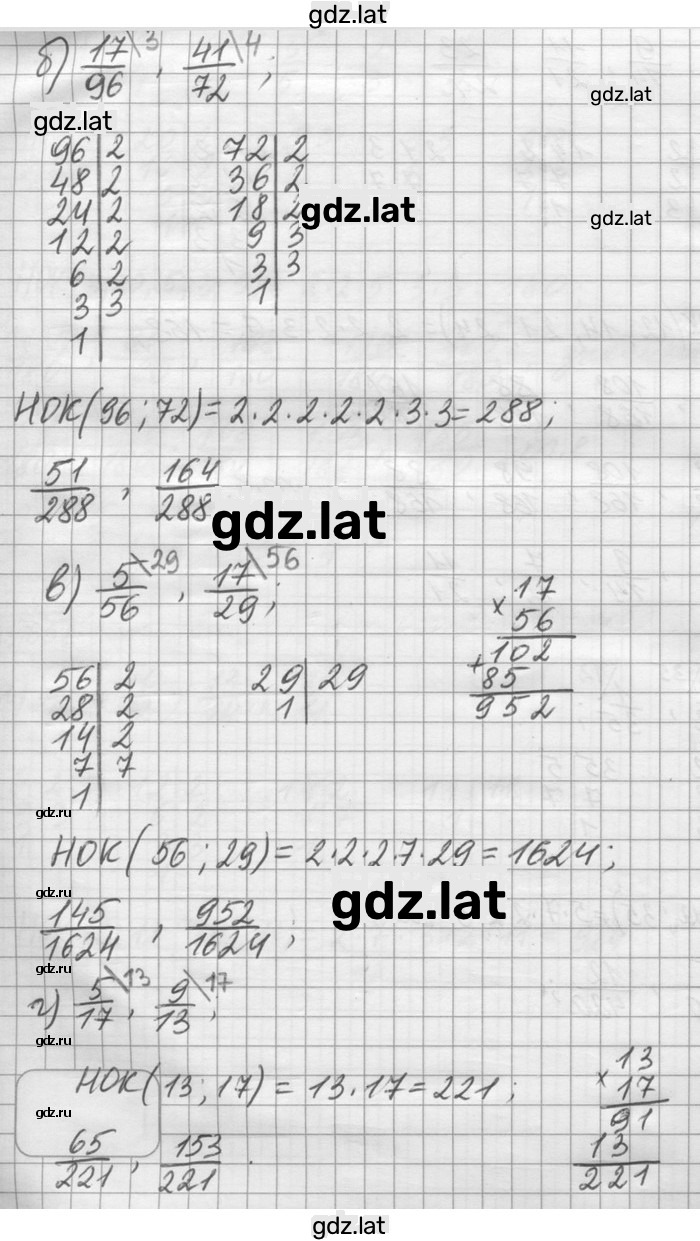 gdz.lat
б) 17/96 \3 , 41/72 \4 ;
gdz.lat
gdz.lat
96|2 72|2
48|2 36|2
24|2 18|2
gdz.lat
gdz.lat
12|2 9|3
6|2 3|3
3|3 1|
1|
НОК(96;72)=2·2·2·2·2·3·3=288;
51/288 , 164/288
gdz.lat
в) 5/56 \29 , 17/29 \56 ;
× 17
56
+ 102
85
952
56|2 29|29
28|2 1|
14|2
7|7
1|
gdz.ru
НОК(56;29)=2·2·2·7·29=1624;
gdz.ru
gdz.lat
145/1624 , 952/1624 ;
gdz.ru
г) 5/17 \13 , 9/13 \17 ;
gdz.ru
НОК(13;17)=13·17=221;
× 13
17
91
13
221
gdz.ru
65/221 , 153/221 .
gdz.ru
gdz.lat